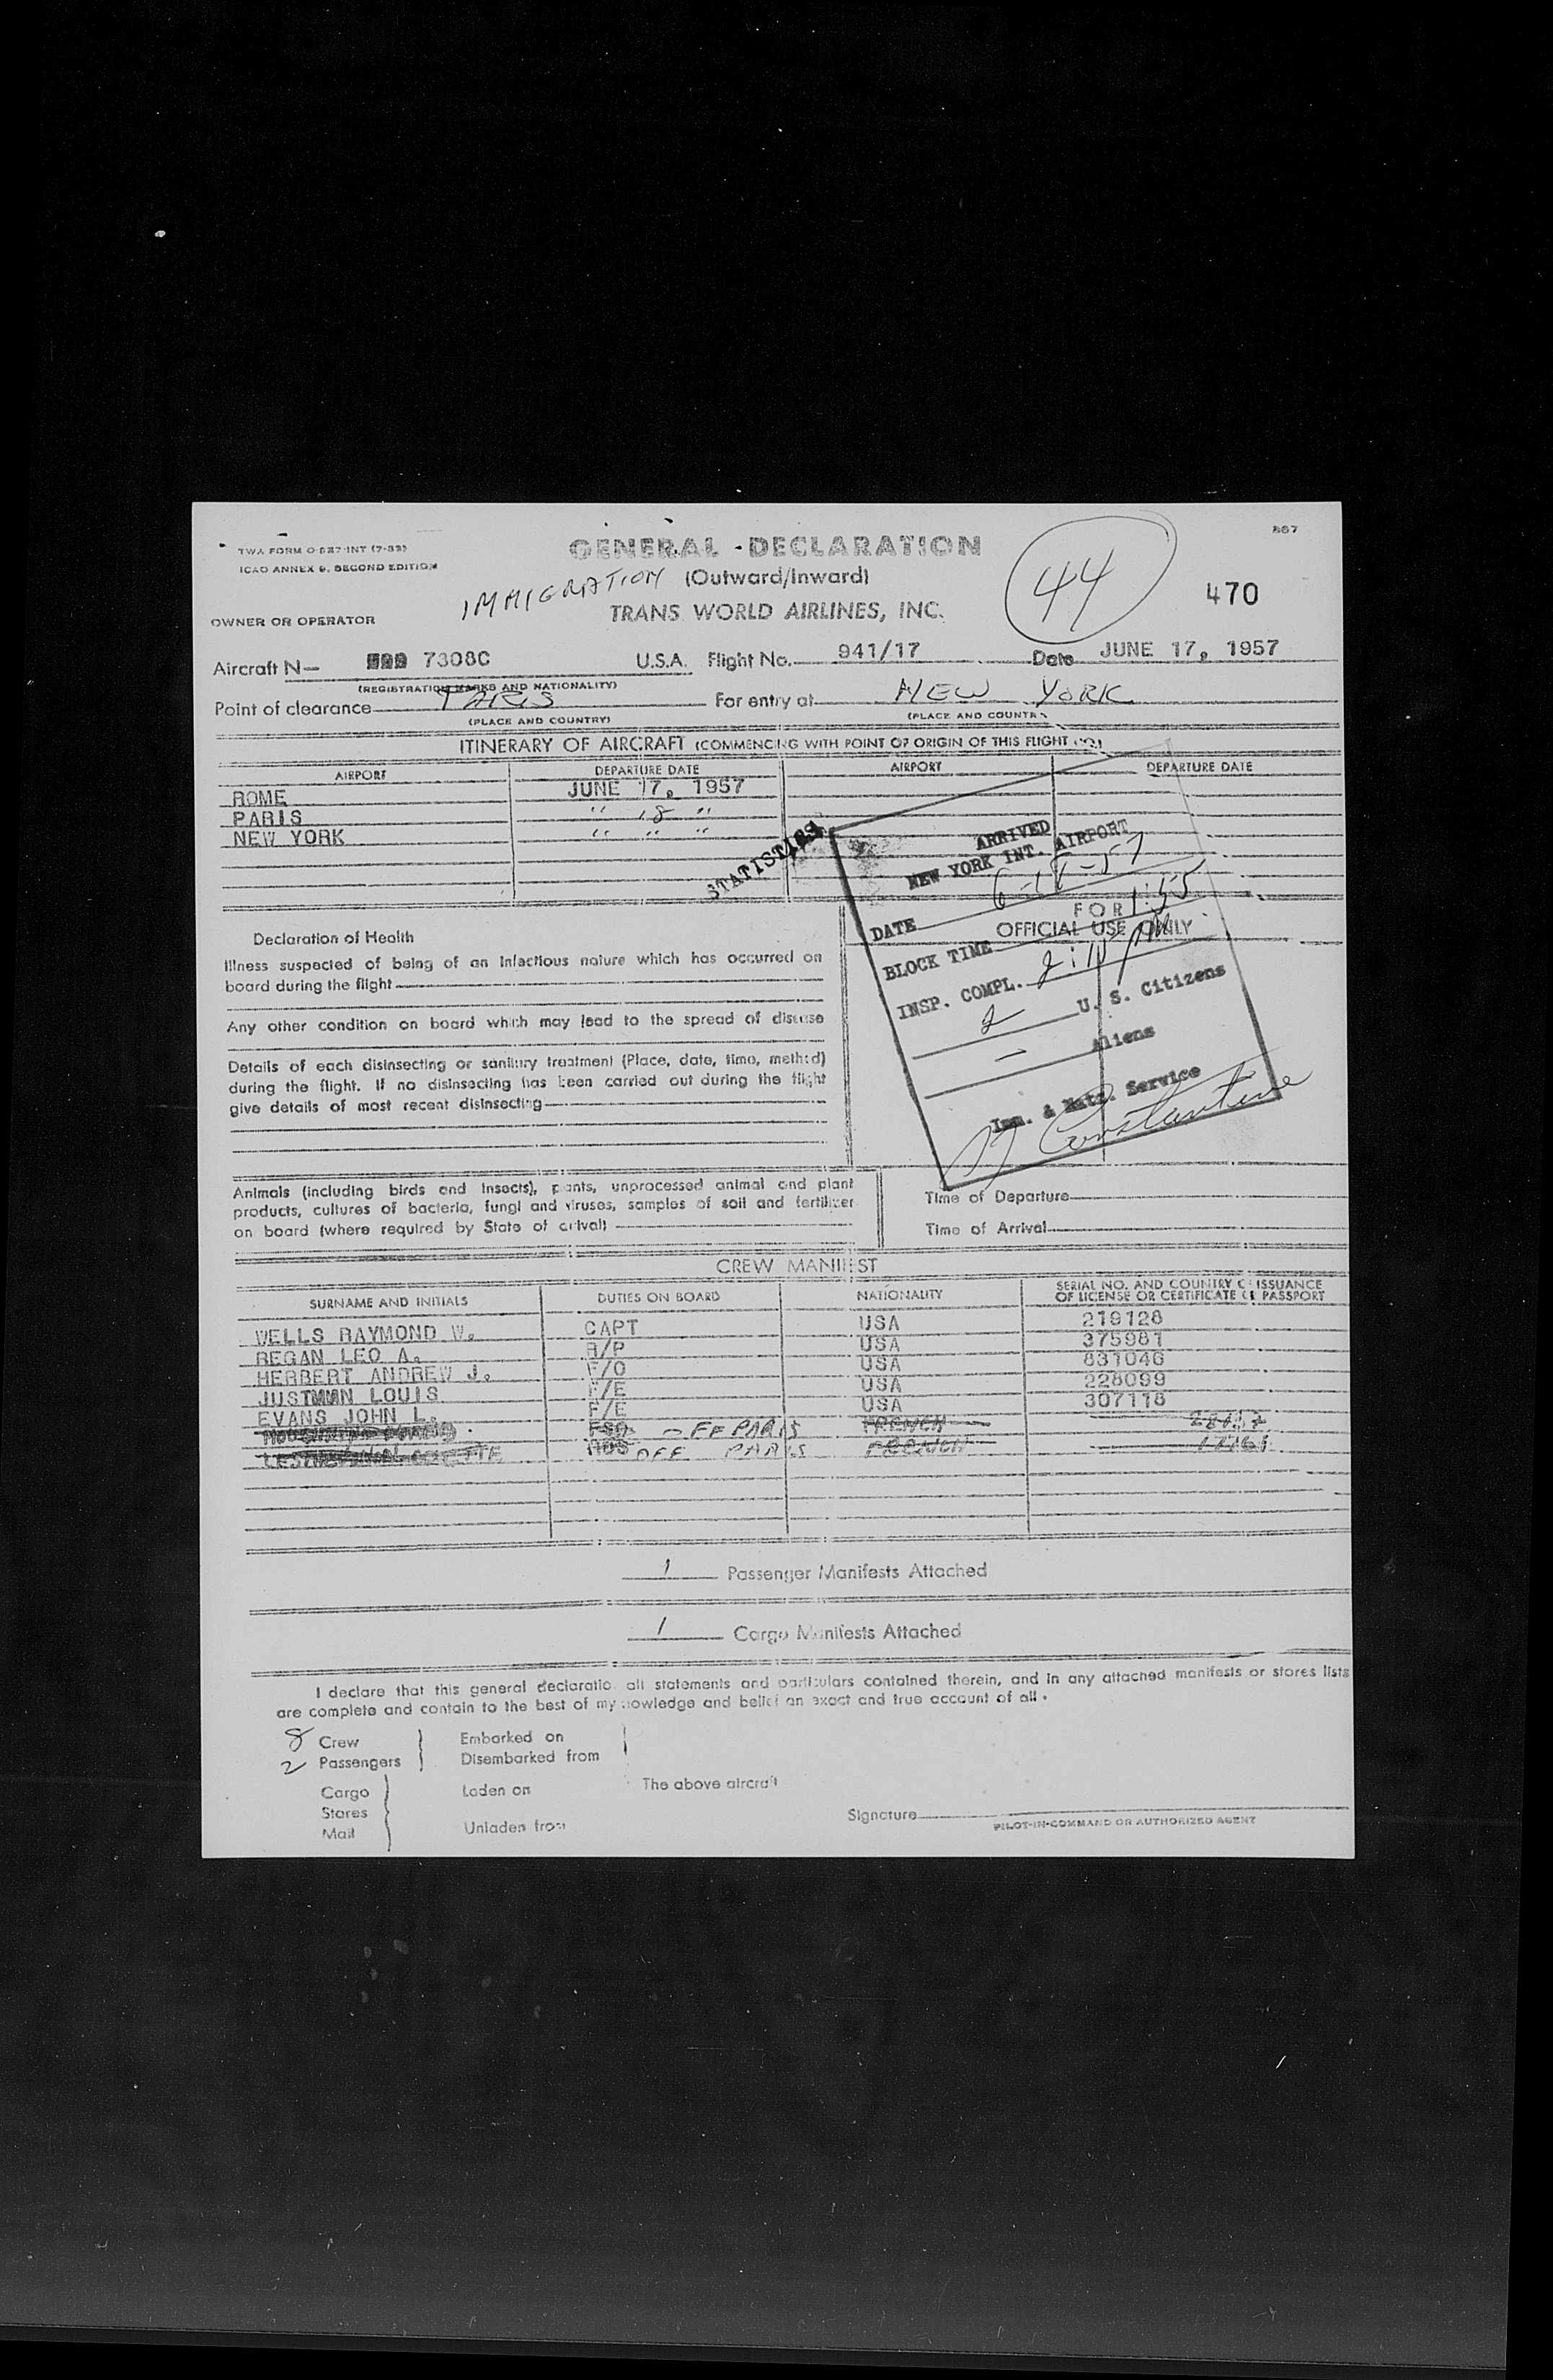 867
TWA FORM O-827-INT (7-53)
ICAO ANNEX 9, SECOND EDITION
GENERAL - DECLARATION
IMMIGRATION (Outward/Inward)
44
470
TRANS WORLD AIRLINES, INC.
OWNER OR OPERATOR
Aircraft N— 7308C U.S.A. Flight No. 941/17 Date JUNE 17, 1957
(REGISTRATION MARKS AND NATIONALITY)
Point of clearance PARIS For entry at NEW YORK
(PLACE AND COUNTRY) (PLACE AND COUNTRY)
ITINERARY OF AIRCRAFT (COMMENCING WITH POINT OF ORIGIN OF THIS FLIGHT NO.)
AIRPORT DEPARTURE DATE AIRPORT DEPARTURE DATE
ROME JUNE 17, 1957
PARIS " 18 "
NEW YORK " " "
STATISTICS
ARRIVED
NEW YORK INT. AIRPORT
DATE 6-18-57
FOR
OFFICIAL USE ONLY
BLOCK TIME 1:55
INSP. COMPL. 2:10 PM
2 U. S. Citizens
— Aliens
Imm. & Natz. Service
Constantine
Declaration of Health
Illness suspected of being of an infectious nature which has occurred on
board during the flight
Any other condition on board which may lead to the spread of disease
Details of each disinsecting or sanitary treatment (Place, date, time, method)
during the flight. If no disinsecting has been carried out during the flight
give details of most recent disinsecting
Animals (including birds and insects), plants, unprocessed animal and plant
products, cultures of bacteria, fungi and viruses, samples of soil and fertilizer
on board (where required by State of arrival)
Time of Departure
Time of Arrival
CREW MANIFEST
SURNAME AND INITIALS DUTIES ON BOARD NATIONALITY SERIAL NO. AND COUNTRY OF ISSUANCE
OF LICENSE OR CERTIFICATE OR PASSPORT
WELLS RAYMOND W. CAPT USA 219128
REGAN LEO A. R/P USA 375981
HERBERT ANDREW J. F/O USA 831046
JUSTMAN LOUIS F/E USA 228099
EVANS JOHN L. F/E USA 307118
OFF PARIS FRENCH
COLETTE HOS OFF PARIS FRENCH
1 Passenger Manifests Attached
1 Cargo Manifests Attached
I declare that this general declaratio all statements and particulars contained therein, and in any attached manifests or stores lists
are complete and contain to the best of my nowledge and belief an exact and true account of all .
8 Crew Embarked on
2 Passengers Disembarked from
Cargo Laden on The above aircraft
Stores
Mail Unladen from
Signature
PILOT-IN-COMMAND OR AUTHORIZED AGENT